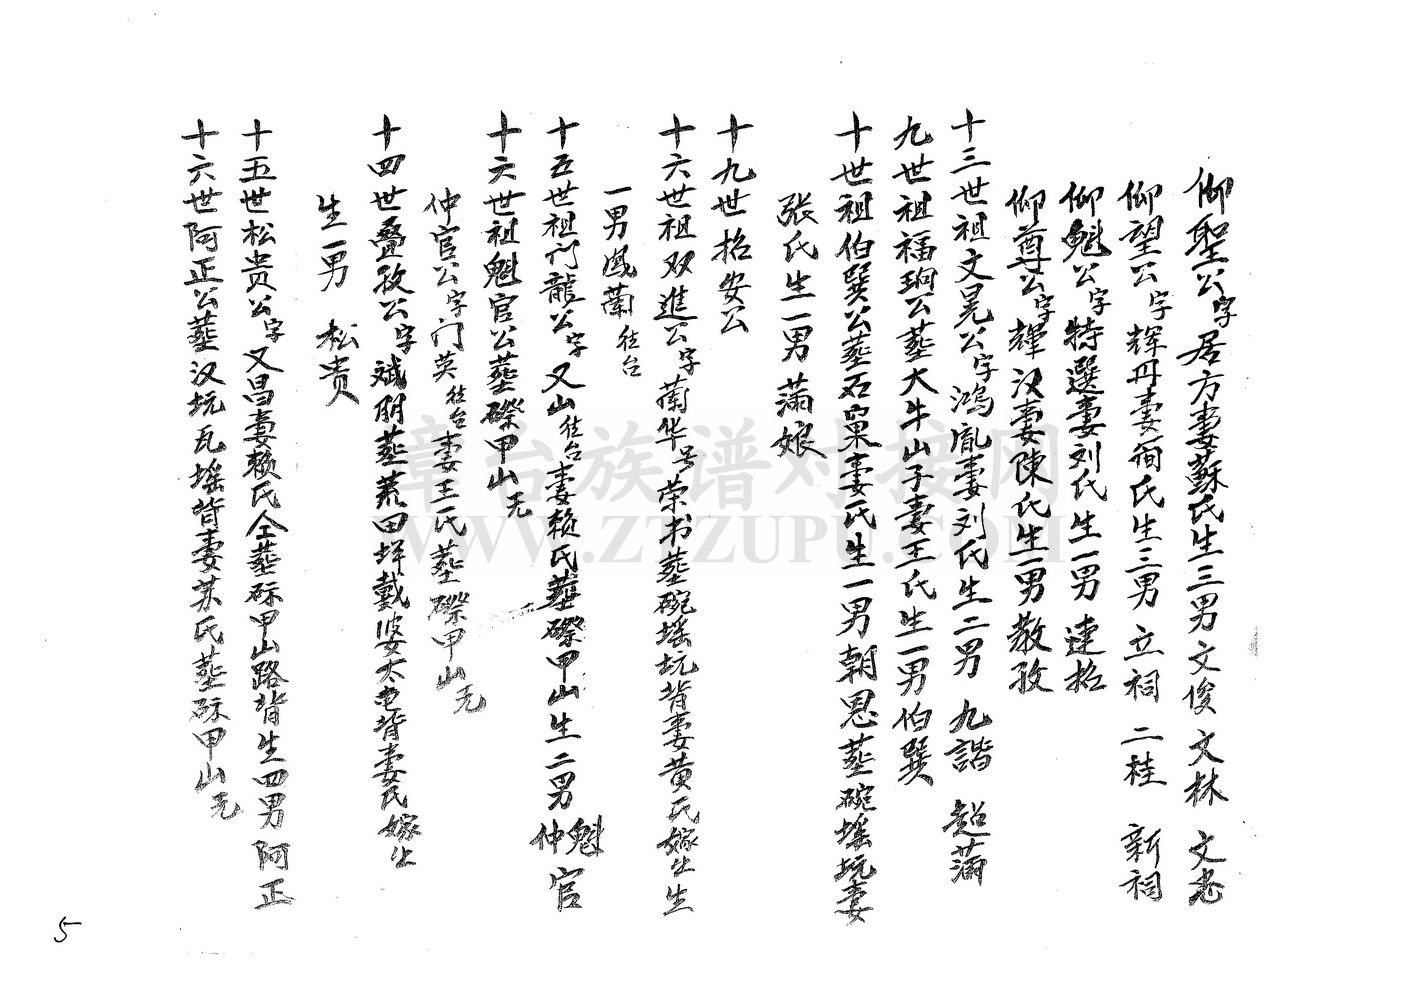 仰聖公字居方妻蘇氏生三男 文俊 文林 文忠
仰望公字輝丹妻荀氏生三男 立祠 二桂 新祠
仰魁公字特選妻刘氏生一男 連招
仰尊公字輝汉妻陳氏生一男 敬孜
十三世祖文晃公字鴻胤妻刘氏生二男 九諧 超蒲
九世祖福珦公塟大牛山子妻王氏生一男伯巽
十世祖伯巽公塟石窠妻氏生一男朝恩塟碗瑶坑妻
張氏生一男蒲娘
十九世招安公
十六世祖双進公字蘭华号荣书塟碗瑶坑背妻黄氏嫁出生
一男鳳蘭往台
十五世祖门龍公字又山往台妻赖氏塟磜甲山生二男魁官仲官
十六世祖魁官公塟磜甲山无
仲官公字门英往台妻王氏塟磜甲山无
十四世叠孜公字斌朋塟蔗田垟戴婆太屯背妻氏嫁出
生一男 松贵
十五世松贵公字又昌妻赖氏仝塟砾甲山路背生四男阿正
十六世阿正公塟汉坑瓦瑶背妻苏氏塟砾甲山无
5
章台族谱对接网
WWW.ZTZUPU.COM